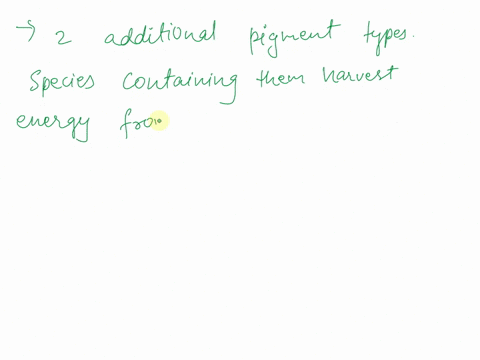 → 2 additional pigment types.
Species containing them harvest
energy fro